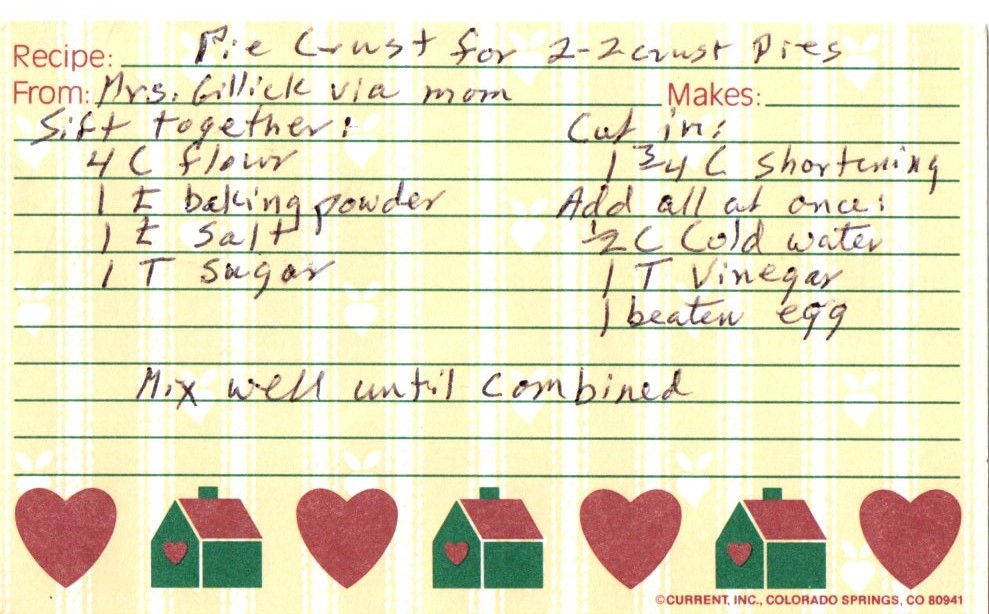 Recipe: Pie Crust for 2-2 crust Pies
From: Mrs. Gillick via mom Makes:
Sift together:
4 C flour
1 t baking powder
1 t Salt
1 T sugar
Cut in:
1 3/4 C shortening
Add all at once:
1/2 C Cold water
1 T Vinegar
1 beaten egg
Mix well until combined
©CURRENT, INC., COLORADO SPRINGS, CO 80941